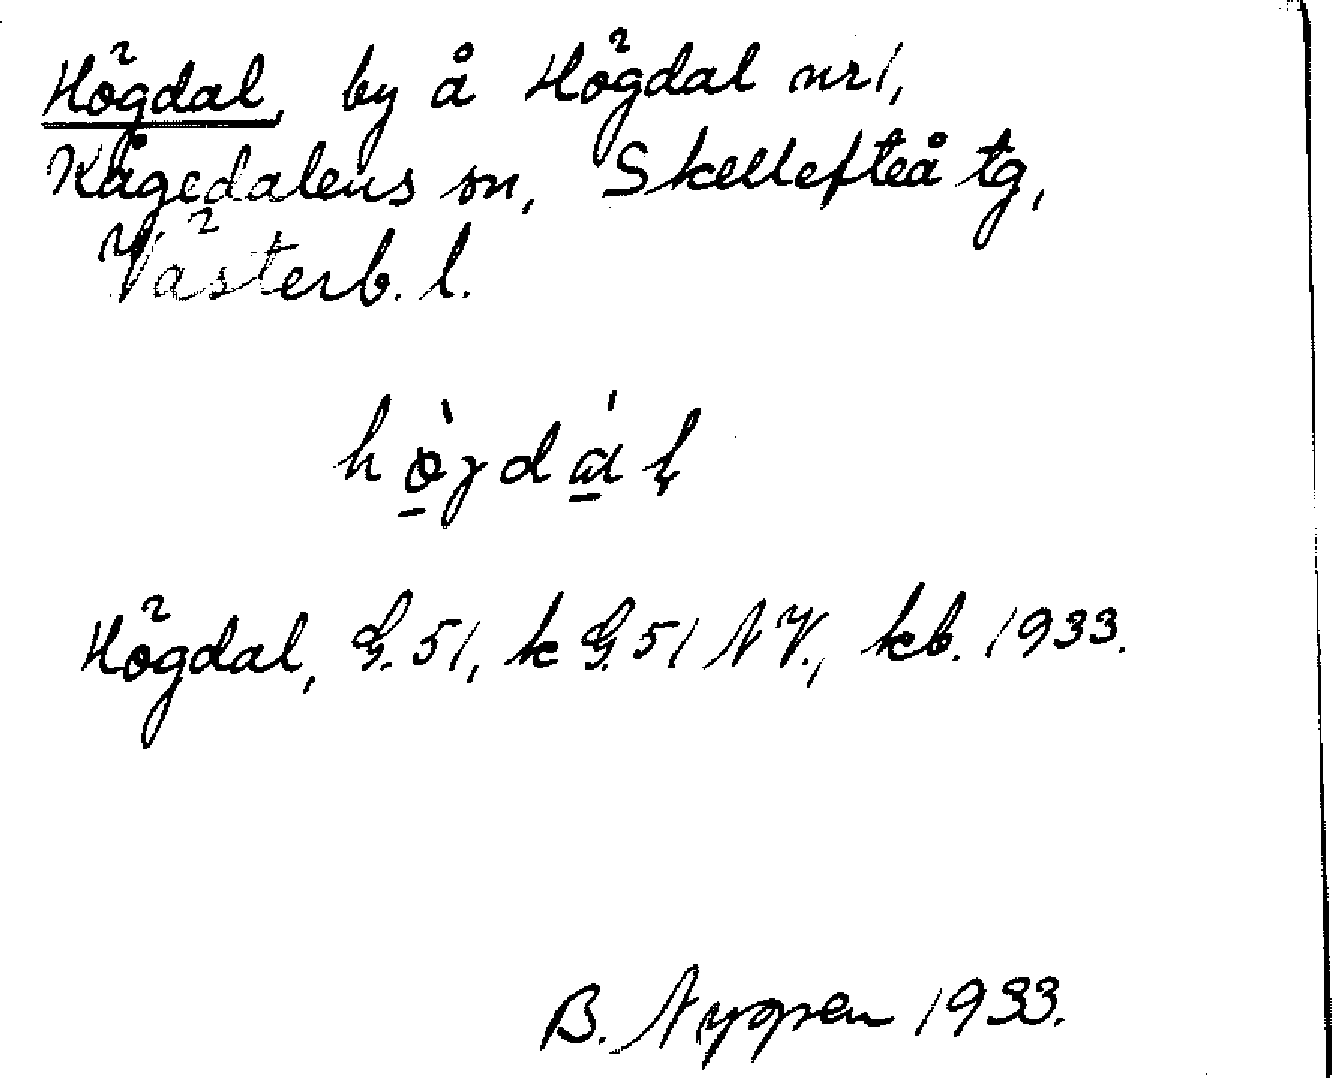 Högdal, by å Högdal nr 1,
Kågedalens sn, Skellefteå tg,
Västerb. l.
hö̠̀gdɑ̠́ḷ
Högdal, G. 51, k G. 51 NV., kb. 1933.
B. Nygren 1933.